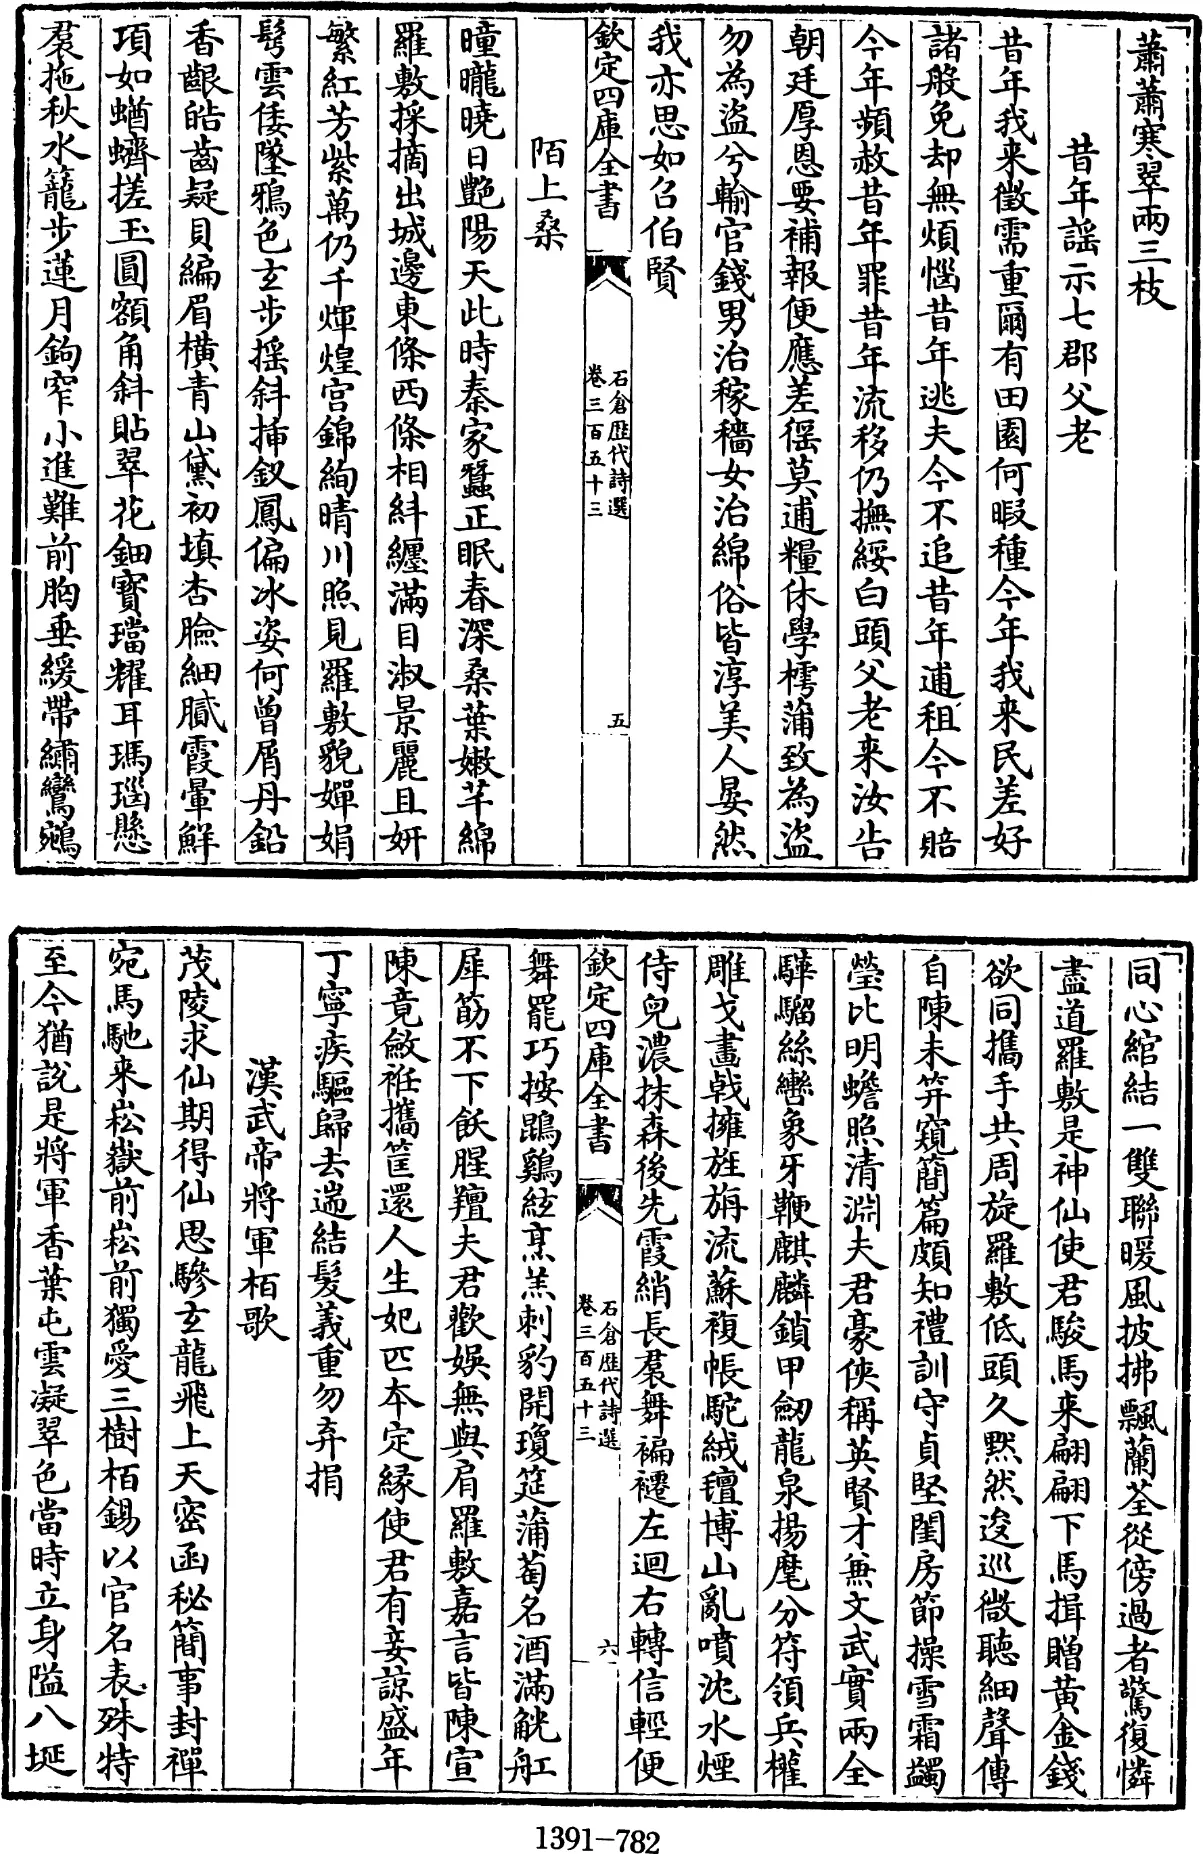 蕭蕭寒翠兩三枝
昔年謡示七郡父老
昔年我来徵需重爾有田園何暇種今年我来民差好
諸般免却無煩惱昔年逃夫今不追昔年逋租今不賠
今年頻赦昔年罪昔年流移仍撫綏白頭父老来汝告
朝廷厚恩要補報便應差徭莫逋糧休學樗蒲致為盗
勿為盗兮輸官錢男治稼穡女治綿俗皆淳美人晏然
我亦思如召伯賢
欽定四庫全書
石倉歴代詩選
卷三百五十三
五
陌上桑
曈曨曉日艶陽天此時秦家蠶正眠春深桑葉嫩芊綿
羅敷採摘出城邊東條西條相糾纏滿目淑景麗且妍
繁紅芳紫萬仍千輝煌宫錦絢晴川照見羅敷貌嬋娟
髩雲倭墜鴉色玄步摇斜挿釵鳳偏冰姿何曾屑丹鉛
香齦皓齒疑貝編眉横青山黛初填杏臉細膩霞暈鮮
項如蝤蠐搓玉圓額角斜貼翠花鈿寳璫耀耳瑪瑙懸
裙拖秋水籠步蓮月鉤窄小進難前胸垂緩帶繡鸞鵷
同心綰結一雙聯暖風披拂飄蘭荃從傍過者驚復憐
盡道羅敷是神仙使君駿馬来翩翩下馬揖贈黄金錢
欲同攜手共周旋羅敷低頭久黙然逡巡微聴細聲傳
自陳未笄窺簡篇頗知禮訓守貞堅閨房節操雪霜蠲
瑩比明蟾照清淵夫君豪俠稱英賢才兼文武實兩全
驊騮絲轡象牙鞭麒麟鎖甲劒龍泉揚麾分符領兵權
雕戈畫戟擁旌旃流蘇複帳駝絨氊博山亂噴沈水煙
侍兒濃抹森後先霞綃長裙舞褊褼左迴右轉信輕便
欽定四庫全書
石倉歴代詩選
卷三百五十三
六
舞罷巧按鵾鷄絃烹羔刺豹開瓊筵蒲萄名酒滿觥舡
犀筯不下飫腥羶夫君歡娱無與肩羅敷嘉言皆陳宣
陳竟斂袵攜筐還人生妃匹本定縁使君有妾諒盛年
丁寧疾驅歸去遄結髪義重勿弃捐
漢武帝將軍栢歌
茂陵求仙期得仙思驂玄龍飛上天密函秘簡事封禪
宛馬馳来崧嶽前崧前獨愛三樹栢錫以官名表殊特
至今猶説是將軍香葉屯雲凝翠色當時立身隘八埏
1391-782